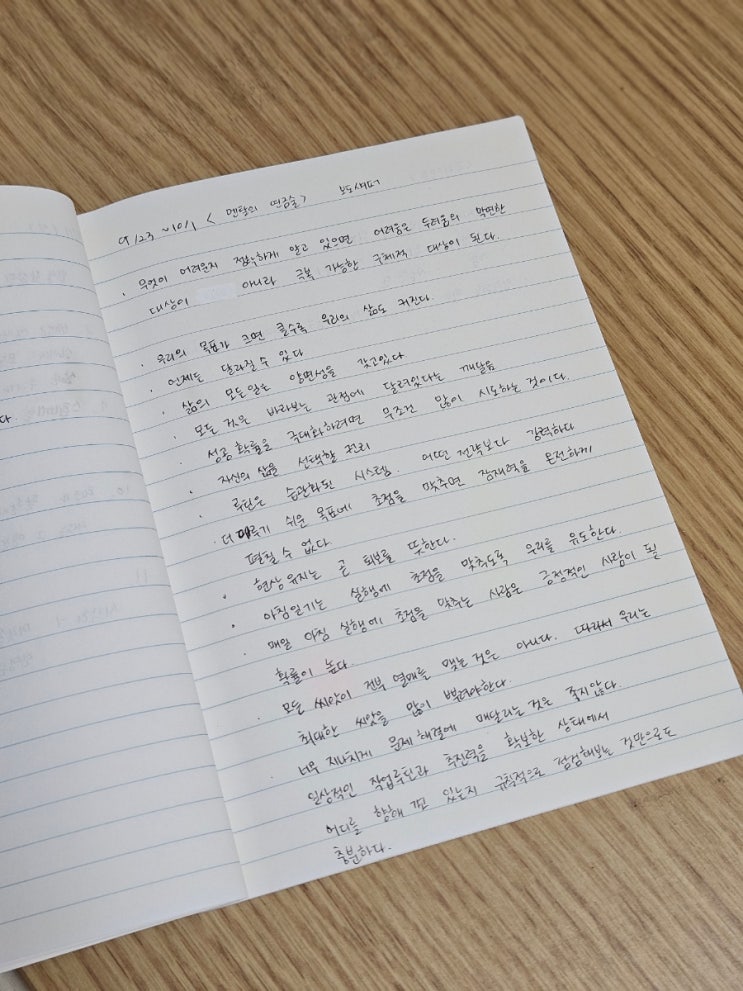 다.
9/23 ~10/1 < 멘탈의 연금술 > 보도섀퍼
· 무엇이 어려운지 정확하게 알고 있으면 어려움은 두려움의 막연한
대상이 아니라 극복 가능한 구체적 대상이 된다.
· 우리의 목표가 크면 클수록 우리의 삶도 커진다.
· 언제든 달라질 수 있다
· 삶의 모든일은 양면성을 갖고있다
· 모든 것은 바라보는 관점에 달려있다는 깨달음
· 성공 확률을 극대화하려면 무조건 많이 시도하는 것이다.
· 자신의 삶을 선택할 권리
· 루틴은 습관화된 시스템. 어떤 전략보다 강력하다
· 더 이루기 쉬운 목표에 초점을 맞추면 잠재력을 온전하게
펼칠 수 없다.
· 현상유지는 곧 퇴보를 뜻한다.
· 아침일기는 실행에 초점을 맞추도록 우리를 유도한다.
· 매일 아침 실행에 초점을 맞추는 사람은 긍정적인 사람이 될
확률이 높다.
· 모든 씨앗이 전부 열매를 맺는 것은 아니다. 따라서 우리는
최대한 씨앗을 많이 뿌려야한다.
· 너무 지나치게 문제해결에 매달리는것은 좋지않다.
일상적인 작업루틴과 추진력을 확보한 상태에서
어디를 향해 가고 있는지 규칙적으로 점검해보는 것만으로도
충분하다.